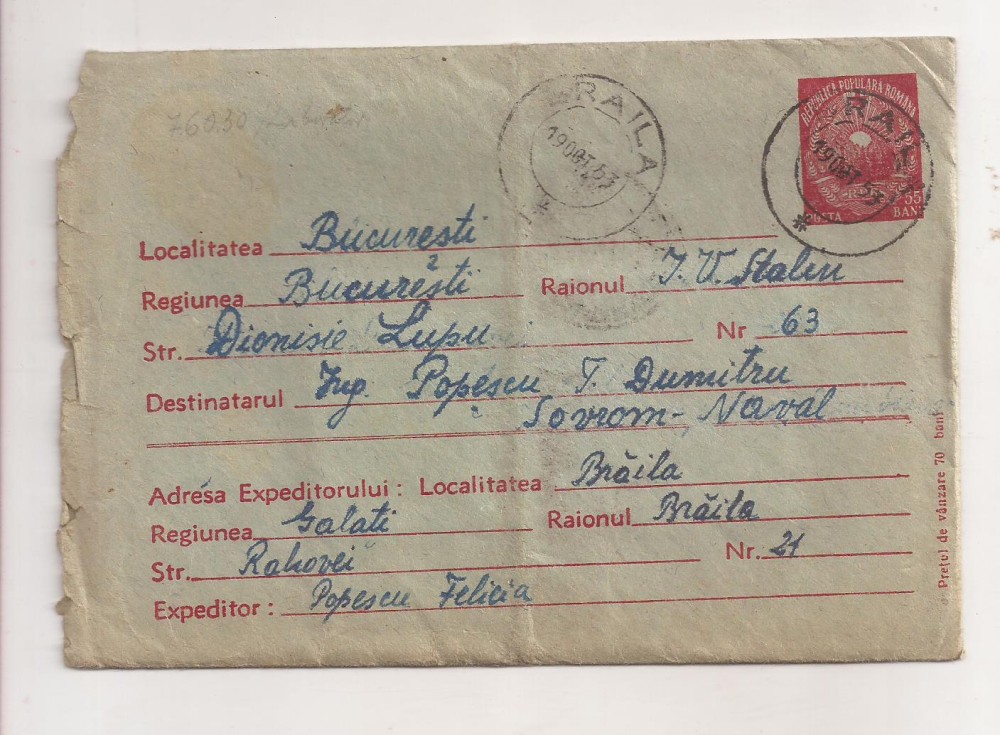 760.30
BRAILA
19 OCT. 53
REPUBLICA POPULARA ROMANA
RPR
POSTA
55 BANI
BRAILA
19 OCT. 53
Localitatea Bucuresti
Regiunea București Raionul I. V. Stalin
2
Str. Dionisie Lupu Nr 63
Destinatarul Ing. Popescu T. Dumitru
Sovrom-Naval
Adresa Expeditorului : Localitatea Brăila
Regiunea Galati Raionul Brăila
Str. Rahovei Nr. 21
Expeditor : Popescu Felicia
Prețul de vânzare 70 bani